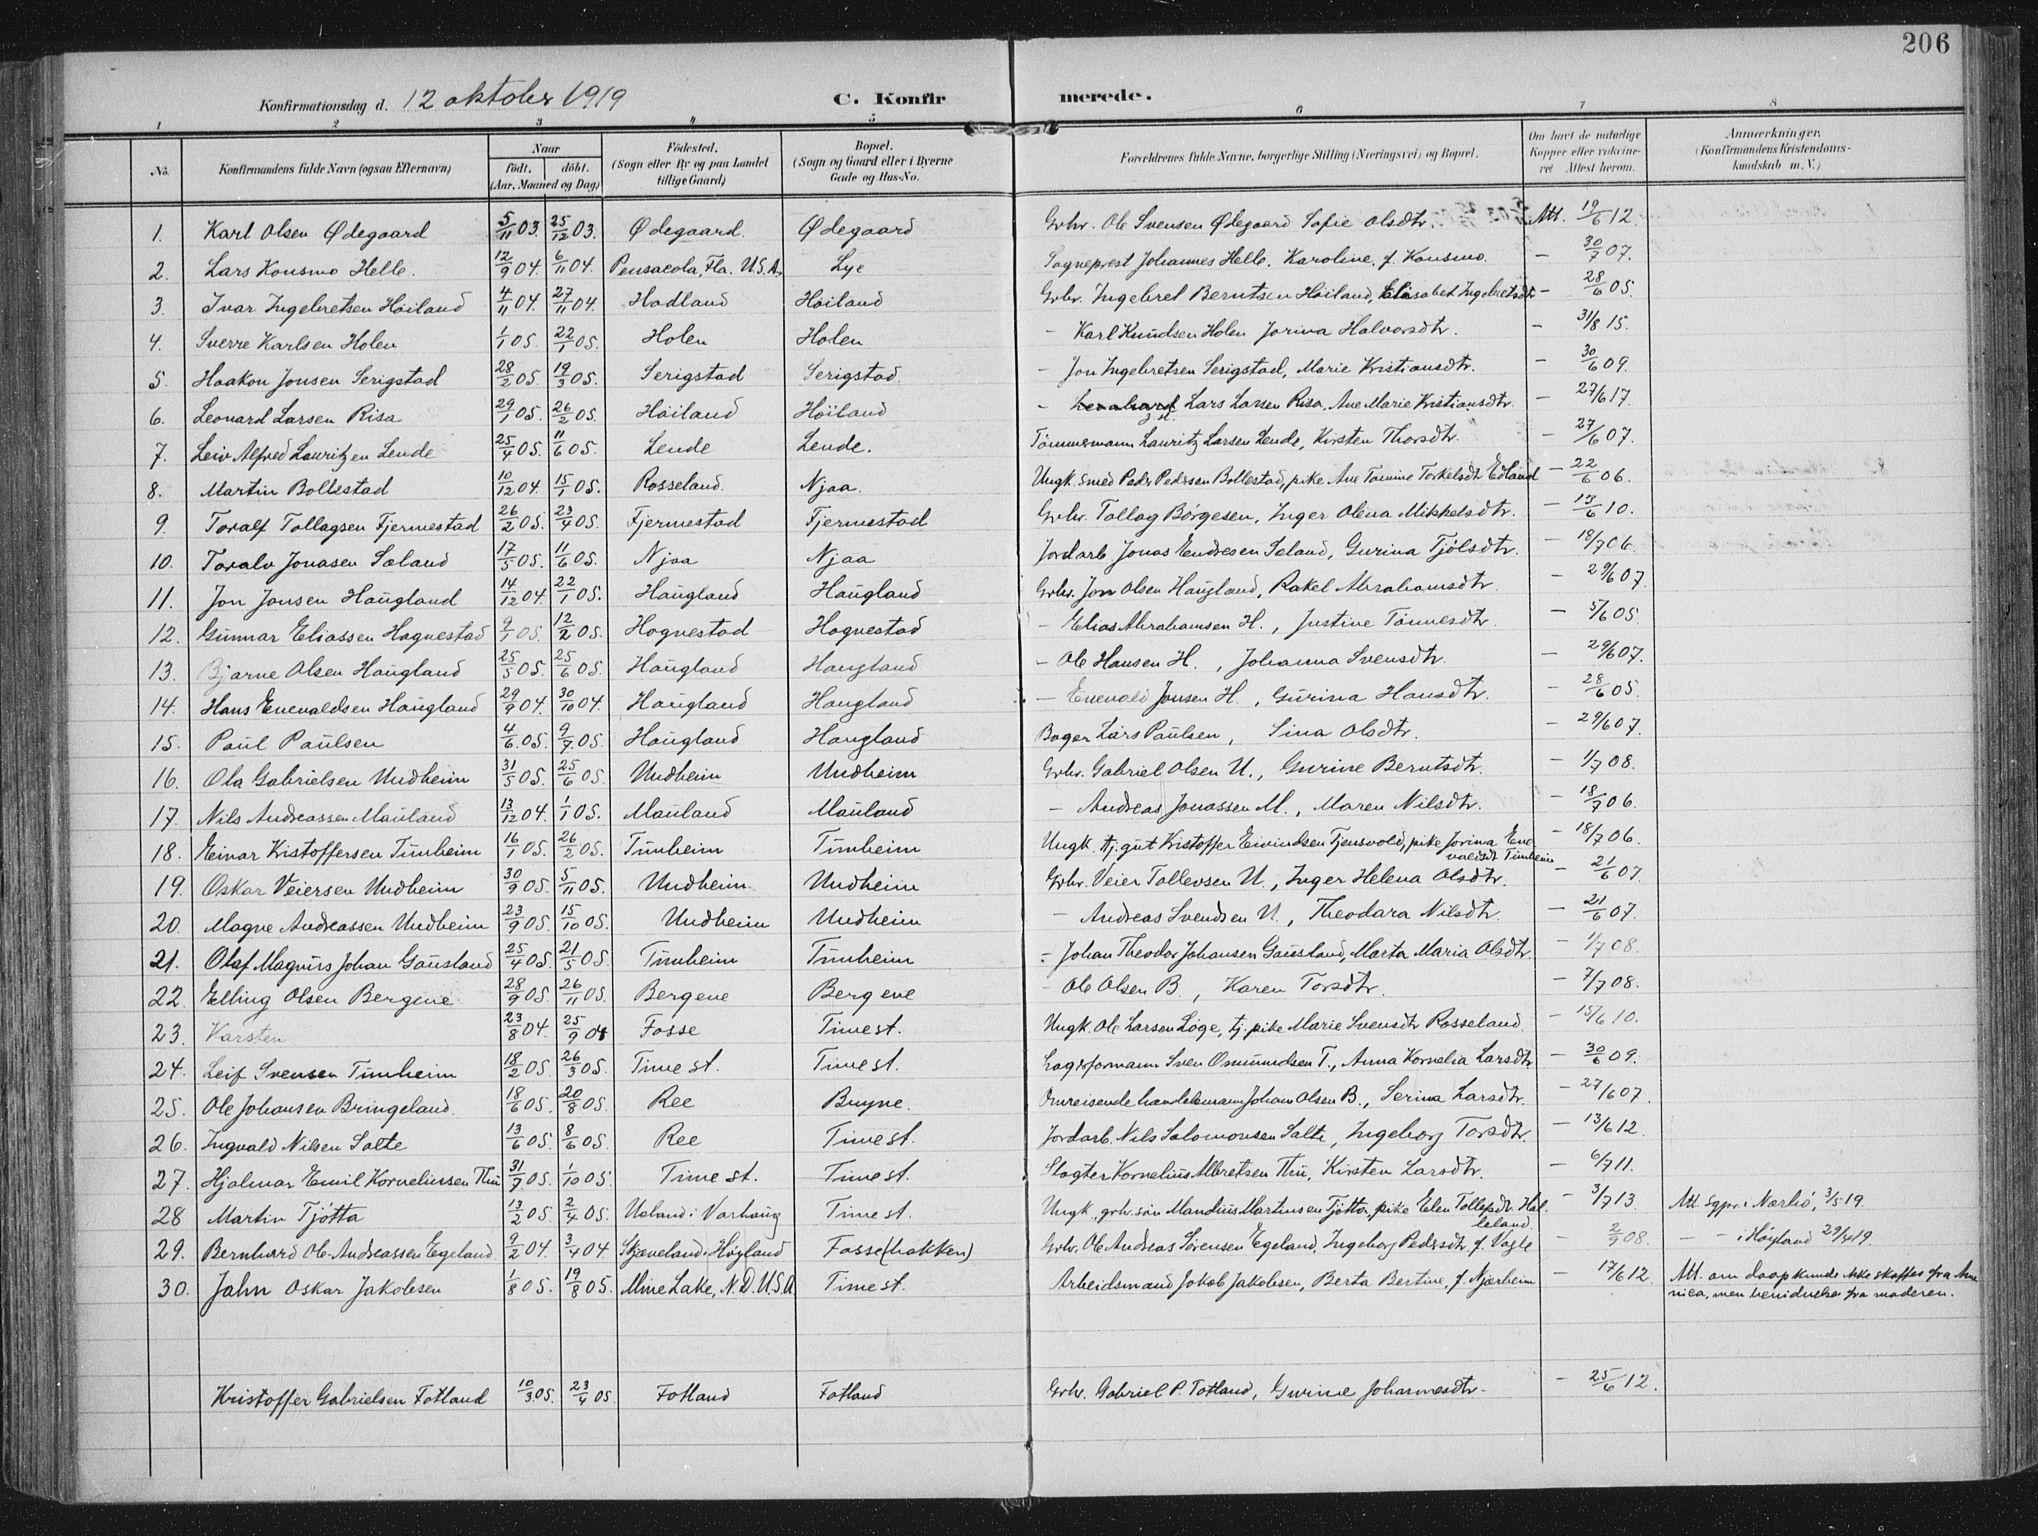 206
Konfirmationsdag d. 12 oktober 1919 C. Konfirmerede.
1 2 3 4 5 6 7 8
No. Konfirmandens fulde Navn (ogsaa Efternavn) Naar født. døbt. (Aar, Maaned og Dag) Fødested. (Sogn eller By og paa Landet tillige Gaard) Bopæl. (Sogn og Gaard eller i Byerne Gade og Hus-No. Forældrenes fulde Navne, borgerlige Stilling (Næringsvei) og Bopæl. Om havt de naturlige Kopper eller vakcineret Attest herom. Anmærkninger. (Konfirmandens Kristendomskundskab m. V.)
1. Karl Olsen Ødegaard 5/11 03. 25/12 03. Ødegaard Ødegaard Grbr. Ole Svensen Ødegaard Sofie Olsdtr. Att. 19/6 12.
2. Lars Konsmo Helle. 12/9 04. 6/11 04. Pensacola, Fla. U.S.A. Lye Sogneprest Johannes Helle. Karoline, f. Konsmo. — 30/7 07.
3. Ivar Ingebretsen Höiland 4/11 04. 27/11 04. Hadland Höiland Grbr. Ingebret Berntsen Höiland, Elisabet Ingebretsdtr — 28/6 05.
4. Sverre Karlsen Holen 1/1 05. 22/1 05. Holen Holen — Karl Knudsen Holen Jorina Halvorsdtr. — 31/8 15.
5. Haakon Jonsen Serigstad 28/2 05. 19/3 05. Serigstad Serigstad. — Jon Ingebretsen Serigstad, Marie Kristiansdtr. — 30/6 09.
6. Leonard Larsen Risa 29/1 05. 26/2 05. Höiland Höiland — Lars Larsen Risa, Ane Marie Kristiansdtr. — 27/6 17.
7. Leiv Alfred Lauritzen Lende 25/4 05. 11/6 05. Lende Lende. Tömmermann Lauritz Larsen Lende, Kirsten Thorsdtr. — 27/6 07.
8. Martin Bollestad 10/12 04. 15/1 05. Rosseland. Njaa. Ungk. smed Peder Pedersen Bollestad, pike Ane Tomine Torkelsdtr Edland — 22/6 06.
9. Toralf Tollagsen Fjermestad 26/2 05. 23/4 05. Fjermestad Fjermestad Grbr. Tollag Börgesen, Inger Olena Mikkelsdtr. — 13/6 10.
10. Toralv Jonasen Söland 17/5 05. 11/6 05. Njaa Njaa Jordarb Jonas Endresen Seland, Gurina Tjölsdtr. — 18/7 06.
11. Jon Jonsen Haugland 14/12 04. 22/1 05. Haugland Haugland Grbr. Jon Olsen Haugland, Rakel Abrahamsdtr. — 29/6 07.
12. Gunnar Eliassen Hognestad 9/1 05. 12/2 05. Hognestad Hognestad — Elias Abrahamsen H., Justine Tönnesdtr. — 5/6 05.
13. Bjarne Olsen Haugland 25/5 05. 25/6 05. Haugland Haugland — Ole Hansen H., Johanna Svensdtr. — 29/6 07.
14. Hans Enevaldsen Haugland 29/9 04. 30/10 04. Haugland Haugland — Enevald Jonsen H., Gurina Hansdtr. — 28/6 05.
15. Paul Paulsen 4/6 05. 9/7 05. Haugland Haugland Bager Lars Paulsen, Sina Olsdtr. — 29/6 07.
16. Ola Gabrielsen Undheim 31/5 05. 25/6 05. Undheim Undheim Grbr. Gabriel Olsen U., Gurine Berntsdtr. — 1/7 08.
17. Nils Andreassen Mauland 13/12 04. 1/1 05. Mauland Mauland — Andreas Jonassen M., Maren Nilsdtr. — 18/7 06.
18. Einar Kristoffersen Tunheim 16/1 05. 26/2 05. Tunheim Tunheim Ungk. tj. gut Kristoffer Eivindsen Tjensvold, pike Jorina Ene- — 18/7 06.
valdsdt Tunheim
19. Oskar Veiersen Undheim 30/9 05. 5/11 05. Undheim Undheim Grbr. Veier Tollevsen U., Inger Helena Olsdtr. — 21/6 07.
20. Magne Andreassen Undheim 23/9 05. 15/10 05. Undheim Undheim — Andreas Svendsen U., Theodara Nilsdtr. — 21/6 07.
21. Olaf Magnus Johan Gausland 25/4 05. 21/5 05. Tunheim Tunheim — Johan Theodor Johansen Gausland, Marta Maria Olsdtr. — 1/7 08.
22. Elling Olsen Bergene 28/9 05. 26/11 05. Bergene Bergene — Ole Olsen B., Karen Torsdtr. — 7/7 08.
23. Karsten 23/8 04. 25/9 04 Fosse Time st. Ungk. Ole Larsen Löge, tj. pike Marie Svensdtr Rosseland — 15/6 10.
24. Leif Svensen Tunheim 18/2 05. 26/3 05. Time st. Time st. Lagerformann Sven Osmundsen T., Anna Kornelia Larsdtr — 30/6 09.
25. Ole Johansen Bringeland. 18/6 05. 20/8 05. Ree Bryne. Omreisende handelsmann Johan Olsen B., Serina Larsdtr. — 27/6 07.
26. Ingvald Nilsen Salte 13/6 05. 8/6 05. Ree Time st. Jordarb. Nils Salomonsen Salte, Ingeborg Torsdtr. — 13/6 12.
27. Hjalmar Emil Korneliussen Thu 31/7 05. 1/10 05. Time st. Time st. Slagter Kornelius Albretsen Thu, Kirsten Larsdtr. — 6/7 11.
28 Martin Tjøtta 13/2 05. 2/4 05. Ueland i Varhaug Time st. Ungk., grbr. sön Mandius Martinsen Tjötta, pike Elen Tollefsdtr. Hal- — 3/7 13. Att. sgpr. i Nærbö, 3/5 19.
leland.
29. Bernhard Ole Andreassen Egeland 9/2 04. 3/4 04 Skjæveland i Høyland Fosse (bakken) Grbr. Ole Andreas Sörensen Egeland, Ingeborg Pedersdtr. f. Vagle — 2/9 08. — — i Høyland 29/4 19.
30. Jahn Oskar Jakobsen 1/8 05. 19/8 05. Mine Lake, N.D. U.S.A Time st. Arbeidsmand Jakob Jakobsen, Berta Bertine, f. Njærheim — 17/6 12. Att. om daap kunde ikke skaffes fra Ame-
rica, men bevidnelse fra moderen.
Kristoffer Gabrielsen Fotland 10/3 05. 23/4 05. Fotland Fotland Grbr. Gabriel P. Fotland, Gurine Johannesdtr. — 25/6 12.